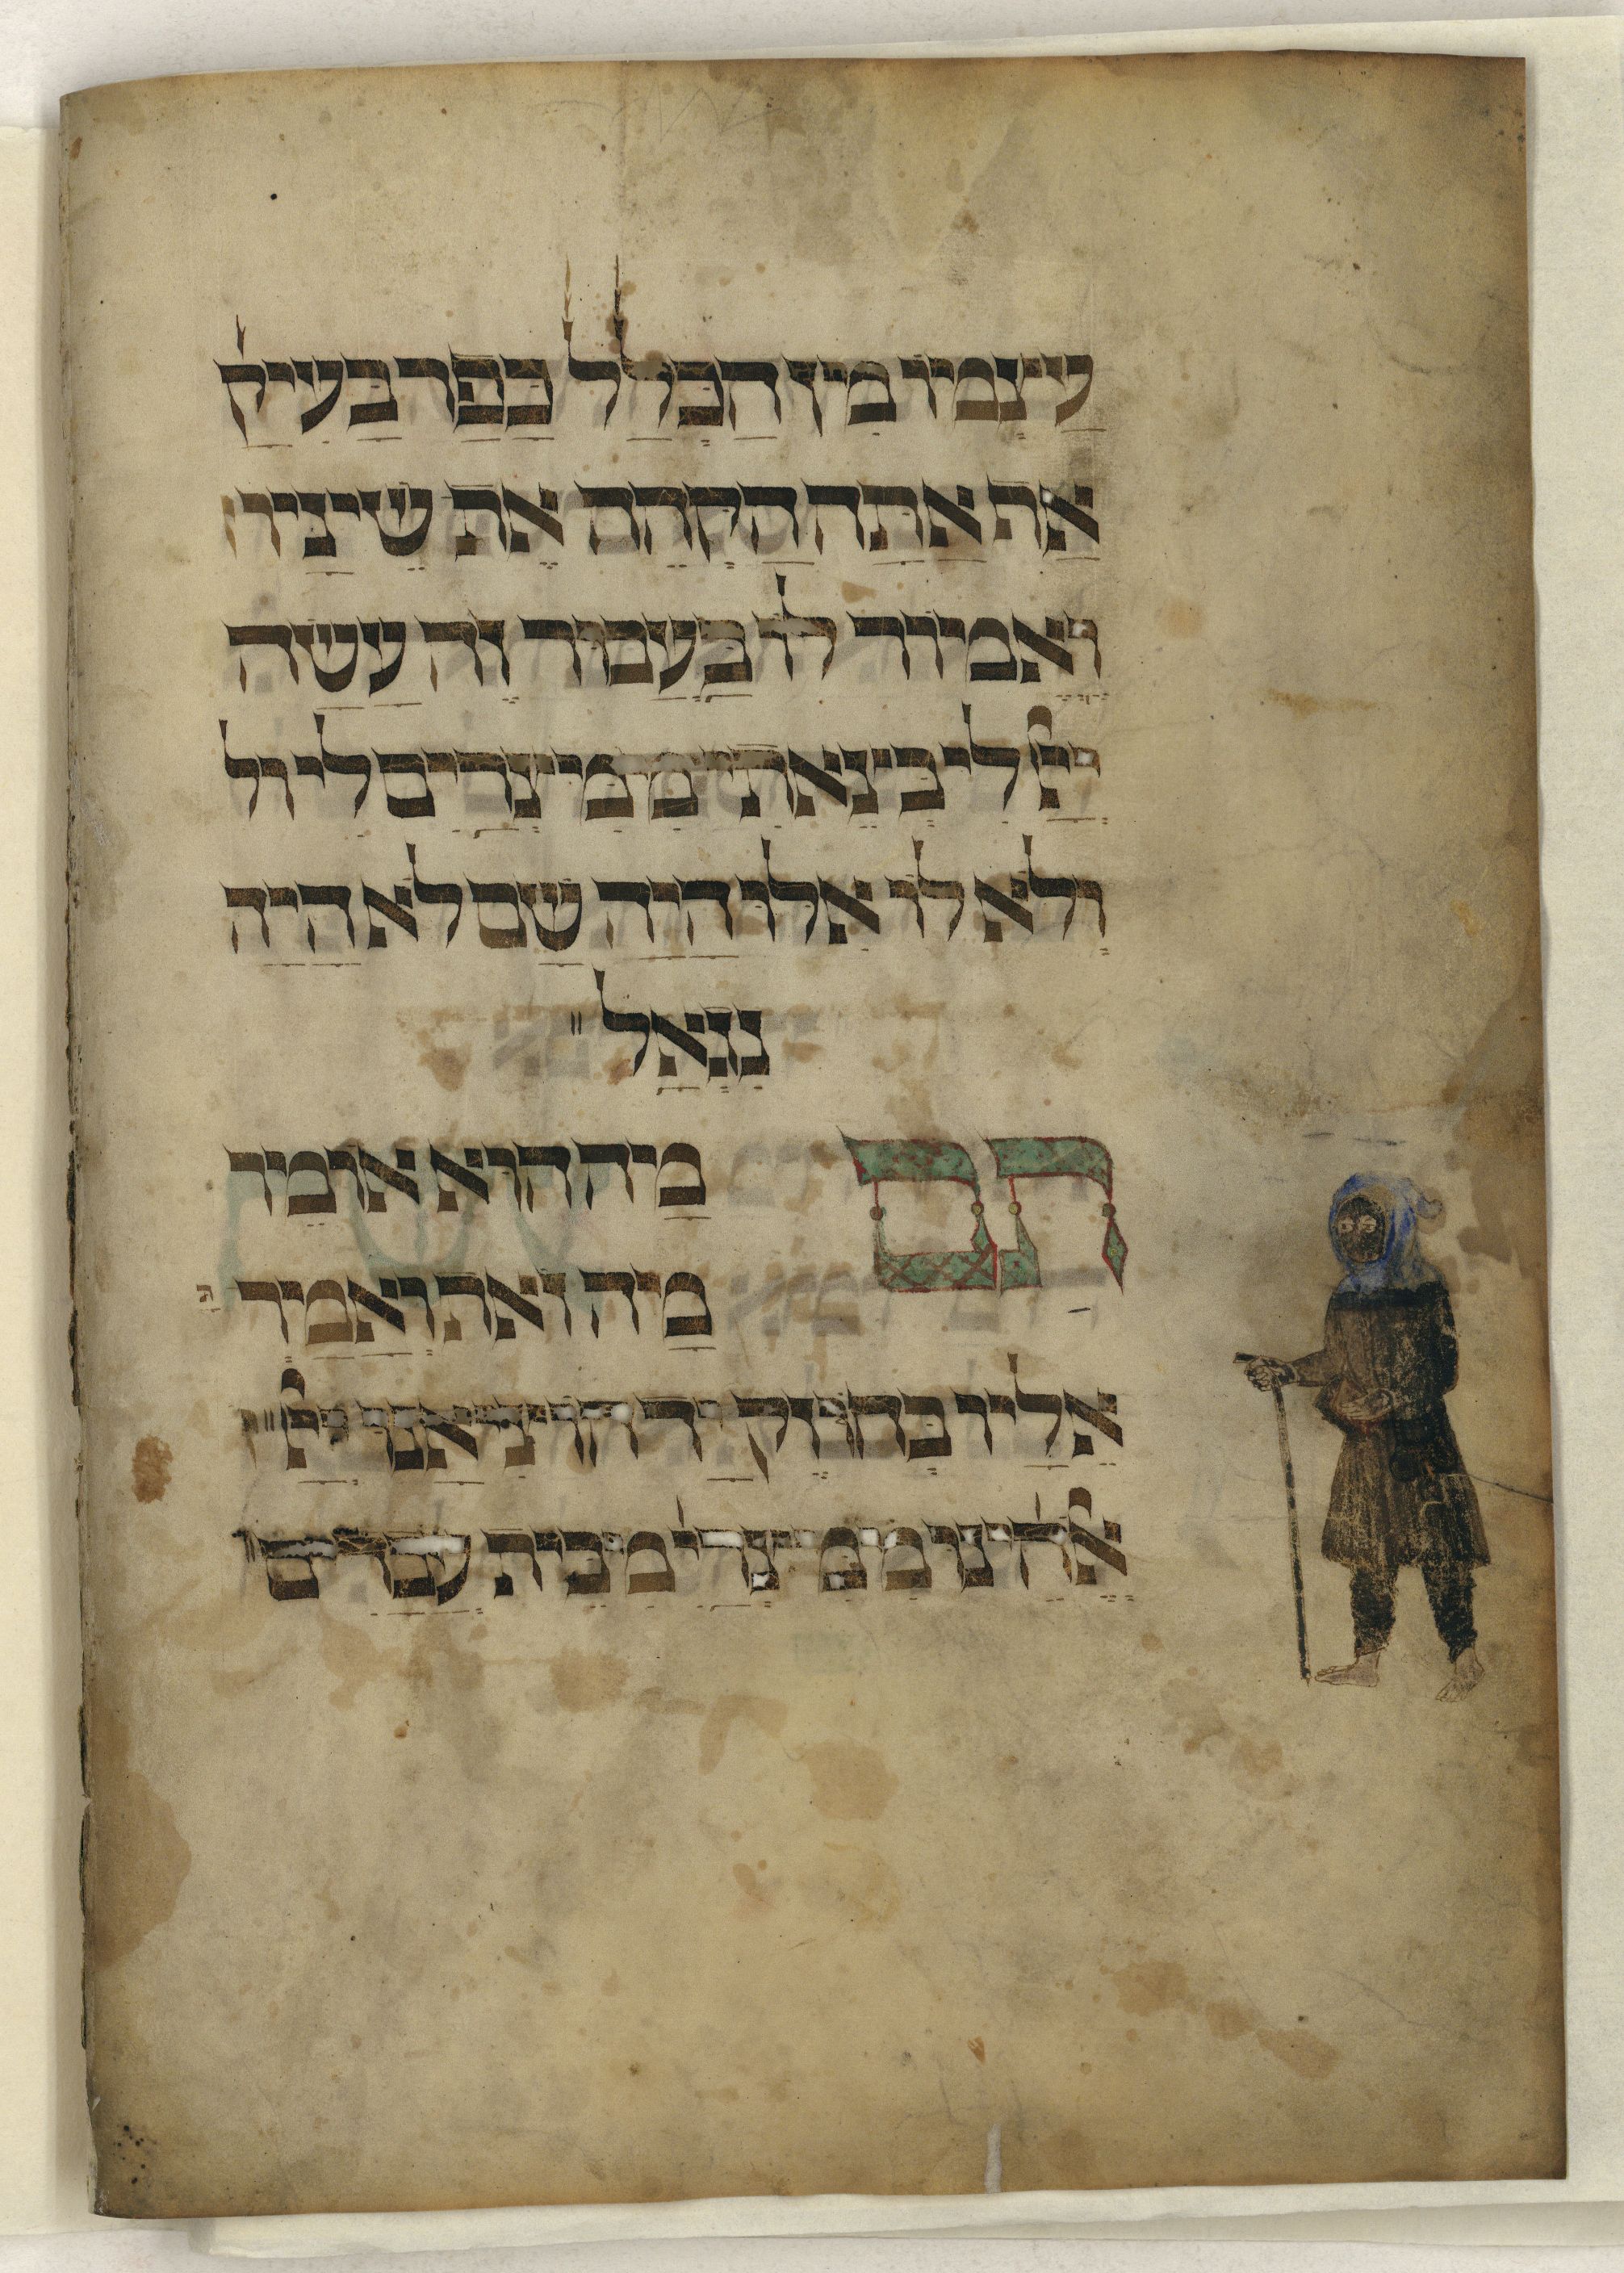 עַיצְמוֹ מִין הַכְּלַל כַּפַר בַּעִיקַ
אַת אַתַּה הַקְהֵה אֶת שִינַּיו
וֶאֱמוֹר לוֹ בַּעֲבוּר זֶה עַשַׂה
יְיָ לִי בְּצֵאתִי מִמִּצְרַיִם לִי וְל
וְלֹא לוֹ אִלּוּ הַיַה שַׁם לֹא הַיַה
נִגְאַל
תם מַיה הוּא אוֹמֵר
מַיה זֹאת וְאַמַרְ
תַּ
אֵלַיו בְּחוֹזֶק יַד הוֹצִיאַנוּ יְיָ
אֱלֹהֵינוּ מִמִּצְרַיִם מִבֵּית עֲבָדִים